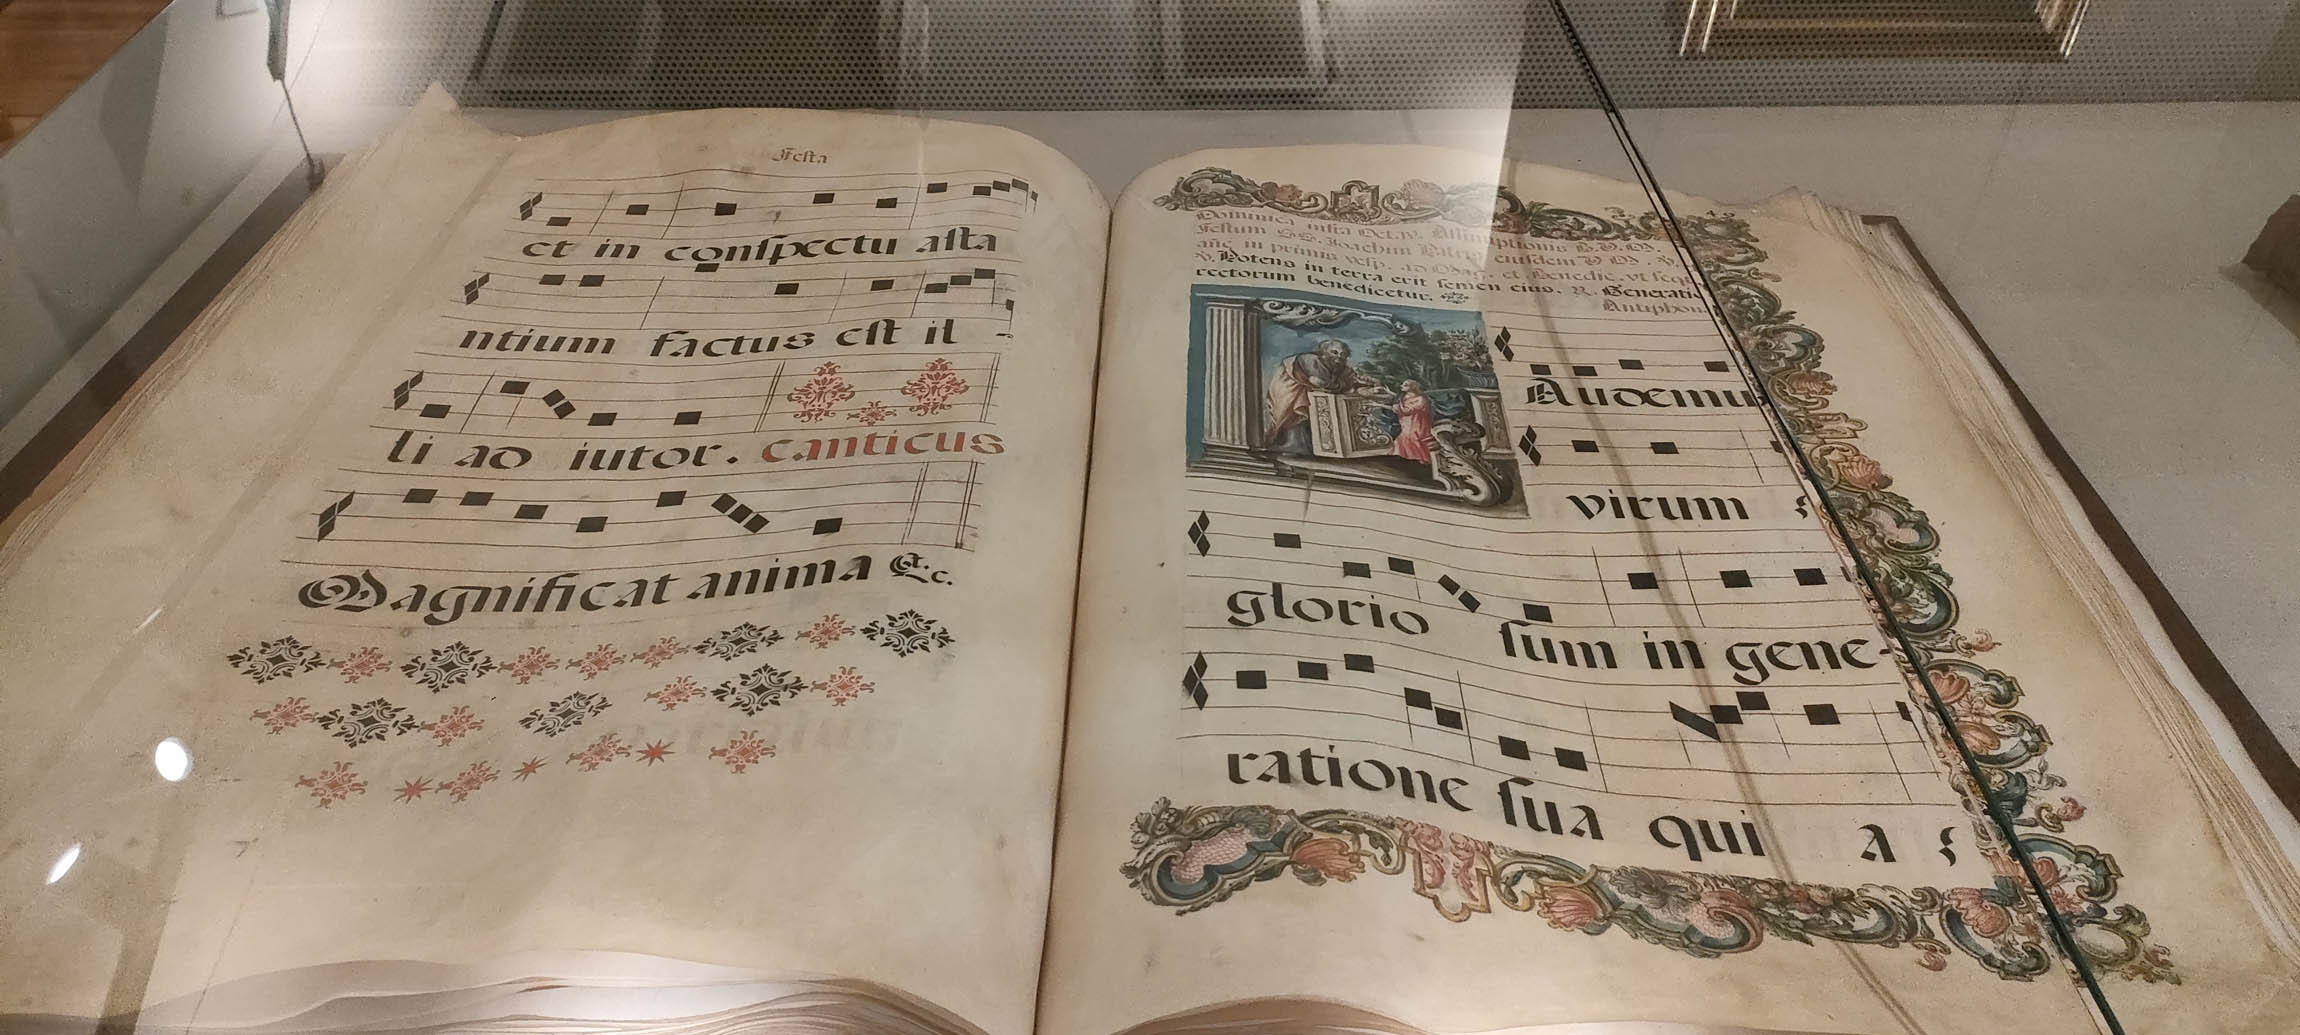 Festa
et in conſpectu aſta
ntium factus eſt il -
li ad iutor. canticus
Magnificat anima &c.
Dominica infra Octav. Aſſumptionis B.V.M.
Feſtum SS. Joachim Patris eiuſdem V.M.
añe in primis veſp. ad Mag. et Benedic. vt ſeq
℣. Potens in terra erit ſemen eius. R. Generatio
rectorum benedicetur.
Antiphon
Audemu
virum
glorio ſum in gene-
ratione ſua qui a